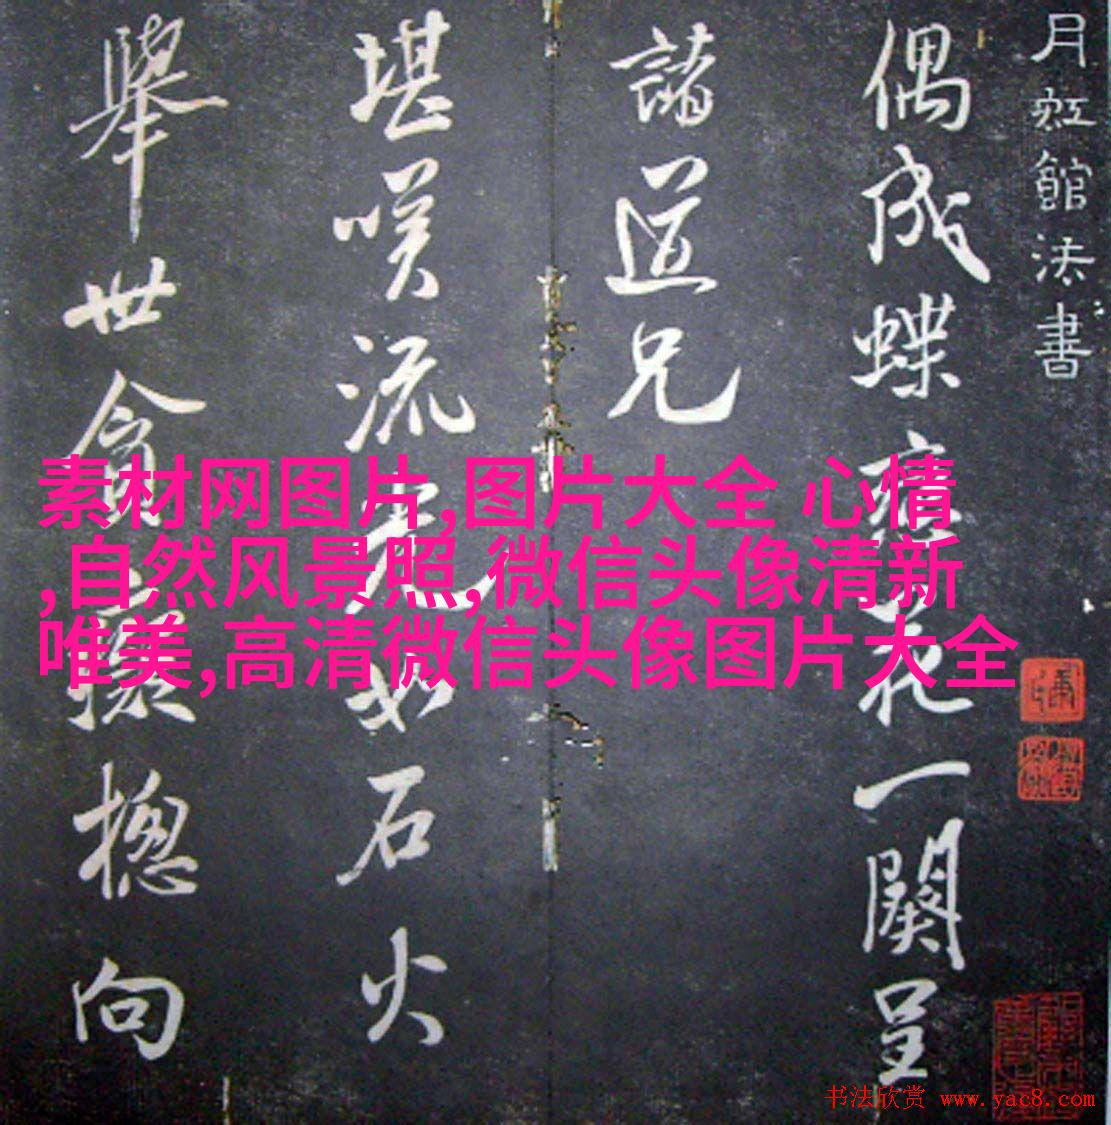 月虹館法書
偶成蝶戀花一闋呈
諸道兄
堪咲流光如石火
舉世貪摠向
素材网图片,图片大全 心情
,自然风景照,微信头像清新
唯美,高清微信头像图片大全
书法欣赏 www.yac8.com